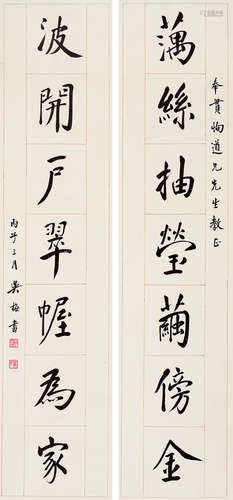 奉貫恂道兄先生教正
蕅絲抽瑩繭傍金
波開戶翠幄為家
丙子三月吳梅書